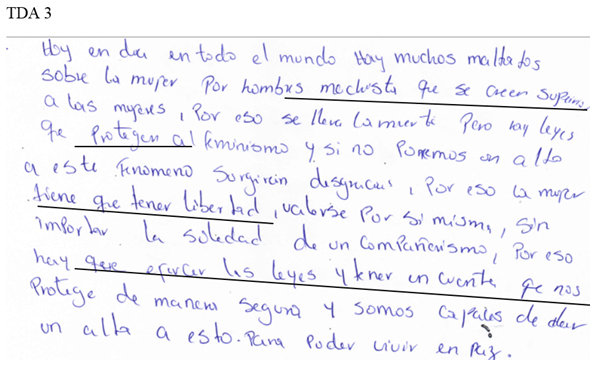 TDA 3
Hoy en dia en todo el mundo Hay muchos maltatos
sobre la mujer Por hombres machista que se creen superior
a las mujeres, Por eso se lleva la muerte Pero hay leyes
que Protegen al feminismo y si no Ponemos un alto
a este fenomeno surgiran desgracias, Por eso la mujer
tiene que tener libertad, valerse Por si misma, sin
importar la soledad de un Compañerismo, Por eso
hay que ejercer las leyes y tener en cuenta que nos
Protege de manera segura y somos capaces de dar
un alto a esto. Para Poder vivir en Paz.